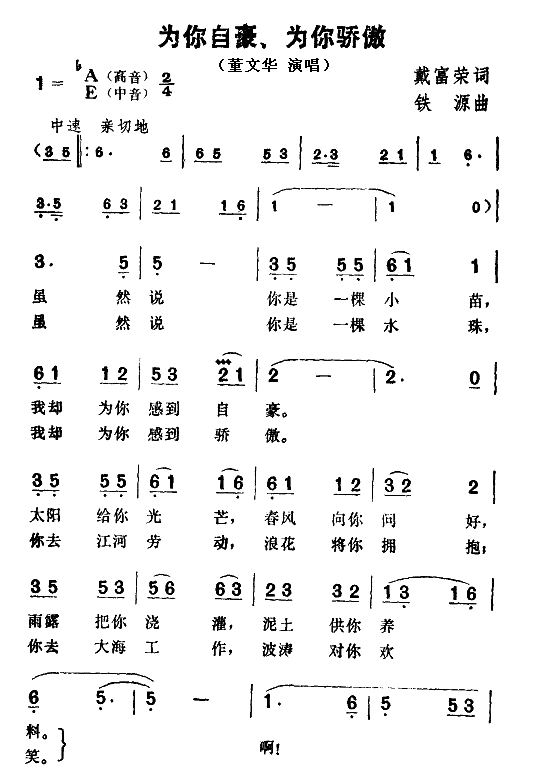 为你自豪、为你骄傲
（董文华 演唱）
1=♭A（高音）E（中音）2/4
戴富荣词
铁 源曲
中速 亲切地
(35‖: 6. 6 | 65 53 | 2·3 21 | 1 6. |
3·5 63 | 21 16 | 1 — | 1 0) |
3. 5 | 5 — | 35 55 | 61 1 |
虽 然 说 你是 一棵 小 苗，
虽 然 说 你是 一棵 水 珠，
61 12 | 53 21 | 2 — | 2. 0 |
我却 为你 感到 自 豪。
我却 为你 感到 骄 傲。
35 55 | 61 16 | 61 12 | 32 2 |
太阳 给你 光 芒，春风 向你 问 好，
你去 江河 劳 动，浪花 将你 拥 抱；
35 53 | 56 63 | 23 32 | 13 16 |
雨露 把你 浇 灌，泥土 供你 养
你去 大海 工 作，波涛 对你 欢
6 5. | 5 — | 1. 6 | 5 53 |
料。
笑。
啊！